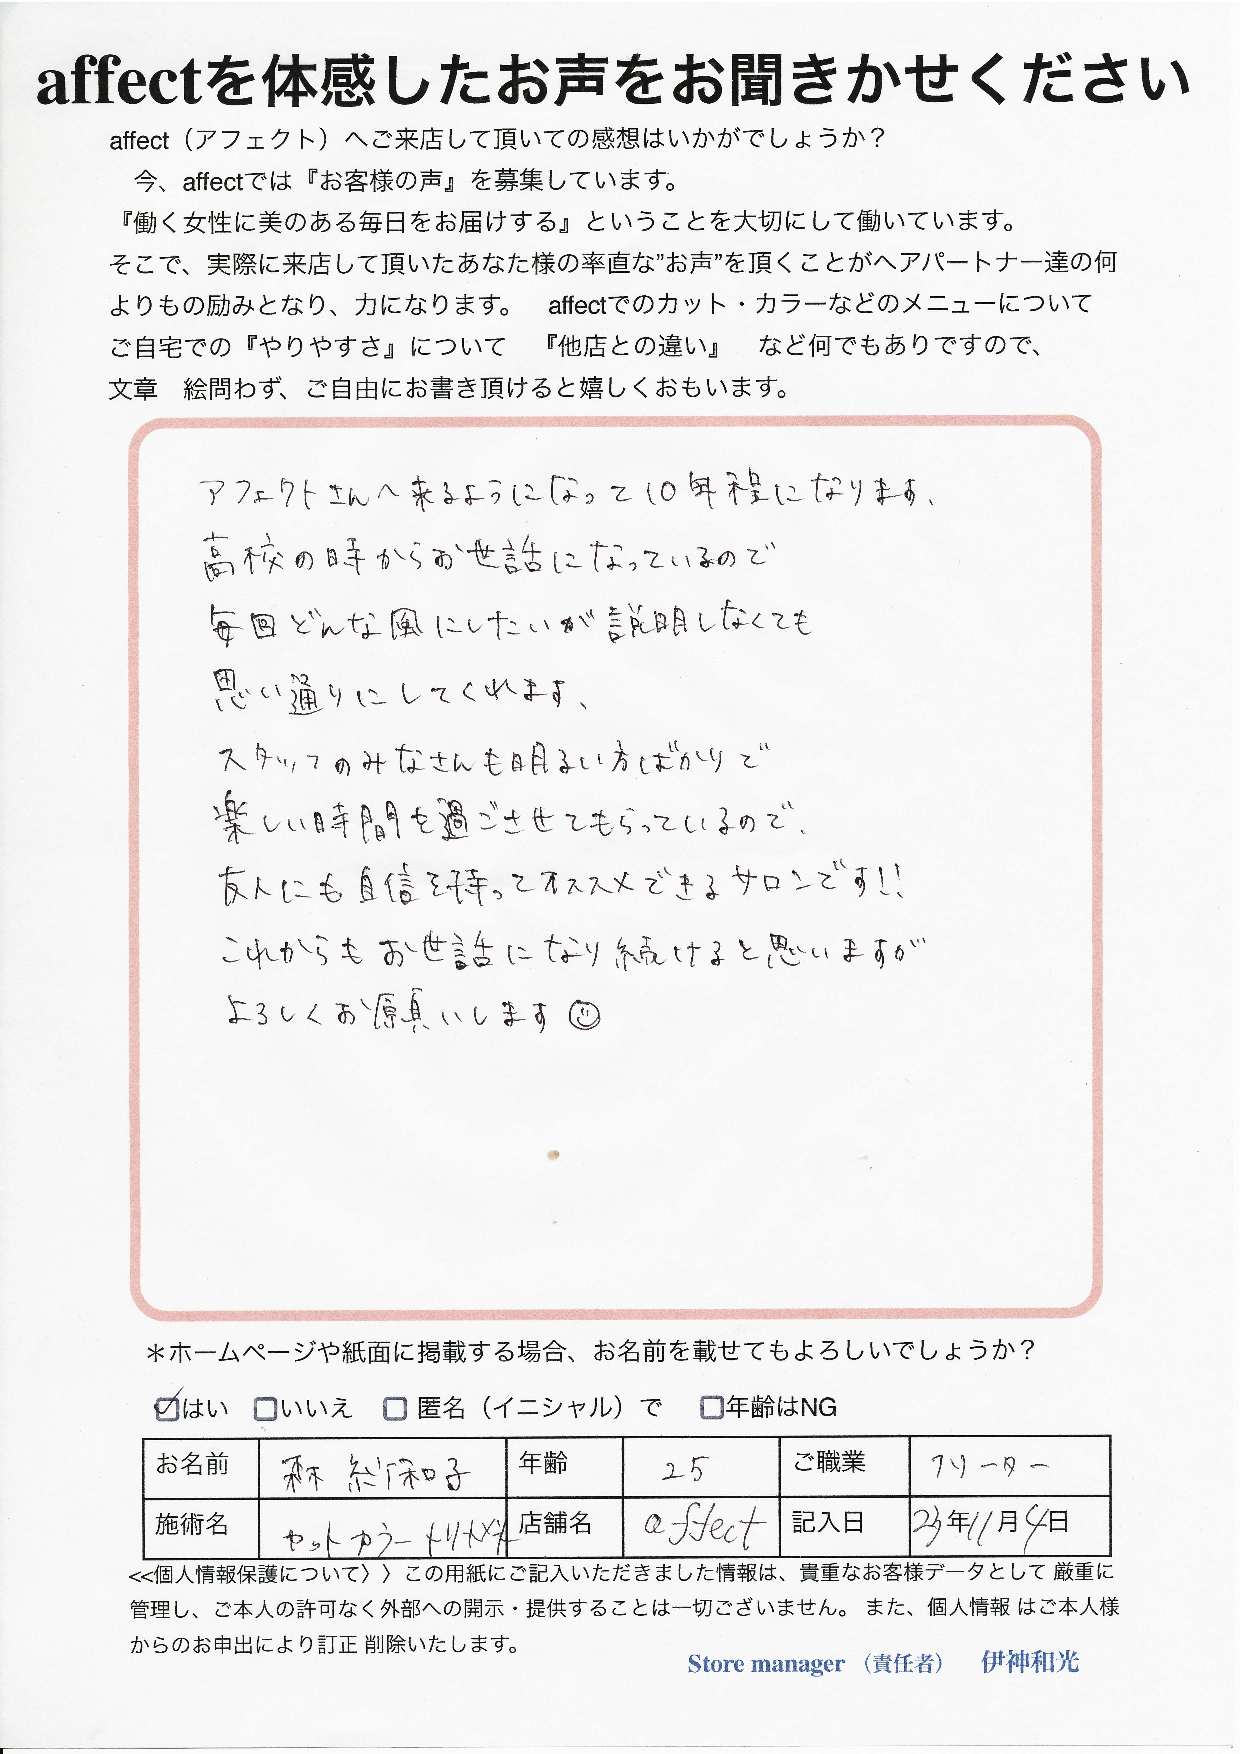 affectを体感したお声をお聞きかせください
affect（アフェクト）へご来店して頂いての感想はいかがでしょうか？
今、affectでは『お客様の声』を募集しています。
『働く女性に美のある毎日をお届けする』ということを大切にして働いています。
そこで、実際に来店して頂いたあなた様の率直な”お声”を頂くことがヘアパートナー達の何
よりもの励みとなり、力になります。　affectでのカット・カラーなどのメニューについて
ご自宅での『やりやすさ』について　『他店との違い』　など何でもありですので、
文章　絵問わず、ご自由にお書き頂けると嬉しくおもいます。
アフェクトさんへ来るようになって10年程になります、
高校の時からお世話になっているので
毎回どんな風にしたいが説明しなくても
思い通りにしてくれます、
スタッフのみなさんも明るい方ばかりで
楽しい時間を過ごさせてもらっているので、
友人にも自信を持ってオススメできるサロンです!!
これからもお世話になり続けると思いますが
よろしくお願いします☺
＊ホームページや紙面に掲載する場合、お名前を載せてもよろしいでしょうか？
☑はい　☐いいえ　☐匿名（イニシャル）で　☐年齢はNG
お名前 森 子 年齢 25 ご職業 フリーター
施術名 カット カラー 店舗名 affect 記入日 23年11月4日
<<個人情報保護について〉〉この用紙にご記入いただきました情報は、貴重なお客様データとして 厳重に
管理し、ご本人の許可なく外部への開示・提供することは一切ございません。 また、個人情報 はご本人様
からのお申出により訂正 削除いたします。
Store manager （責任者）　伊神和光